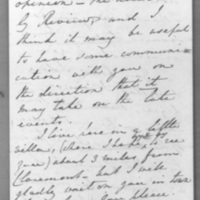 opinion — the
by Reviews and I
think it may be useful
to have some communi-
cation with you on
the direction that it
may take on the late
events.
I live here in a little
villa, (where I hope to see
you) about 3 miles from
Claremont — but I will
gladly wait on you in town